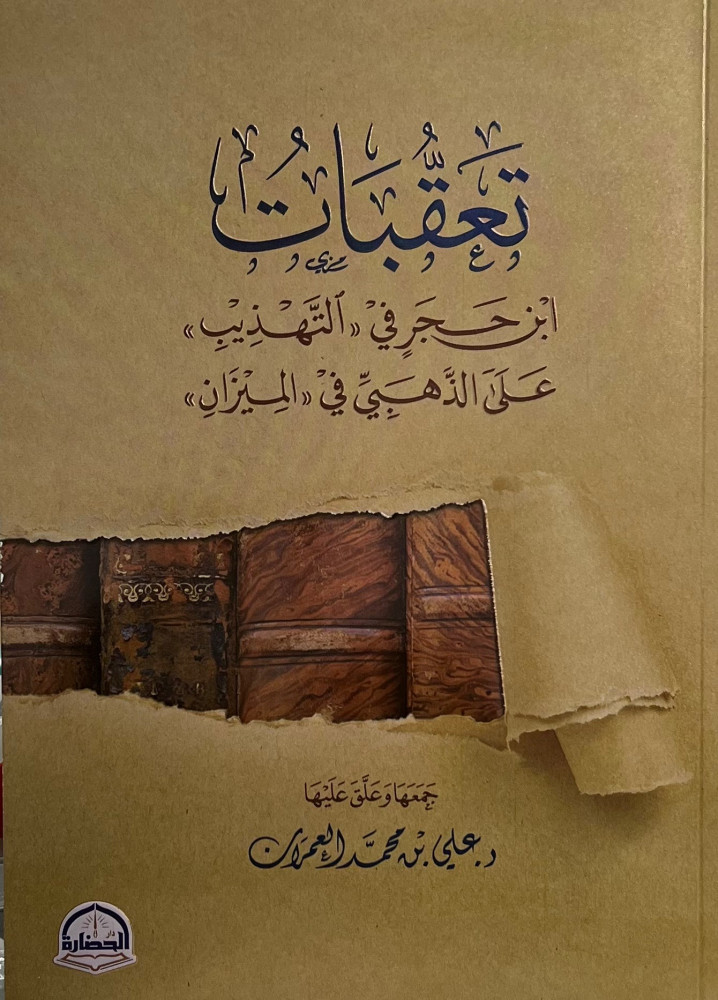 تَعَقُّبَاتُ
ابْنِ حَجَرٍ فِيْ «التَّهْذِيْبِ»
عَلَى الذَّهَبِيِّ فِيْ «المِيْزَانِ»
جَمَعَهَا وَعَلَّقَ عَلَيْهَا
د. علي بن محمَّد العمران
دار
الحضارة